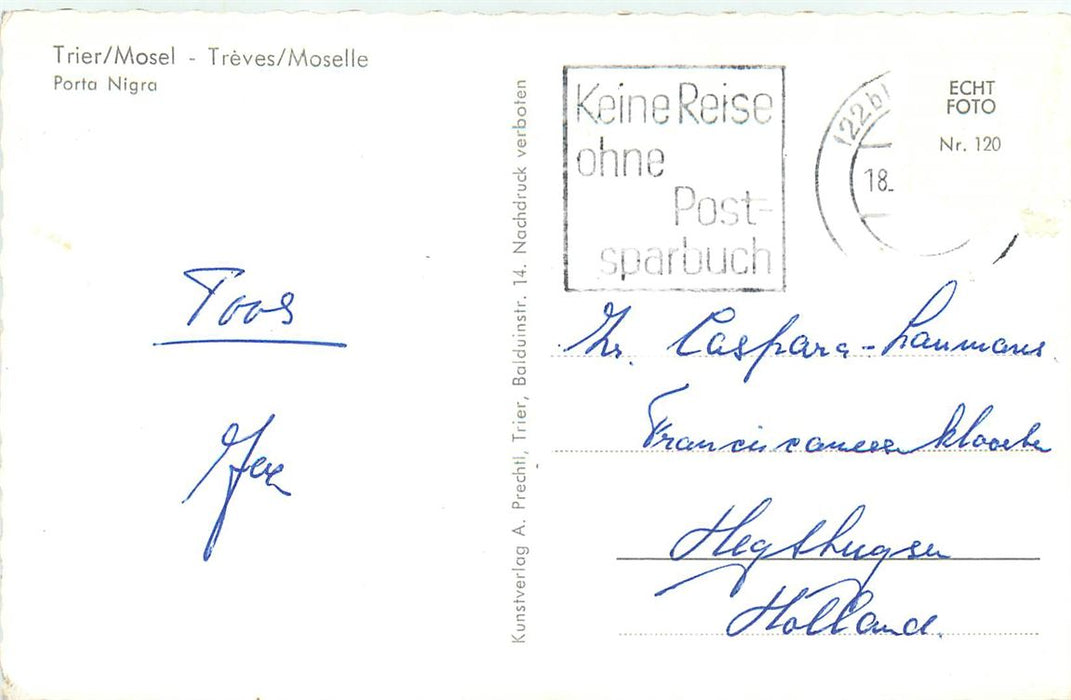 Trier/Mosel - Trèves/Moselle
Porta Nigra
Toos
Kunstverlag A. Prechtl, Trier, Balduinstr. 14. Nachdruck verboten
Keine Reise
ohne
Post-
sparbuch
(22b)
18.
ECHT
FOTO
Nr. 120
Caspara-Laumans
Franciscanessen klooster
Holland.